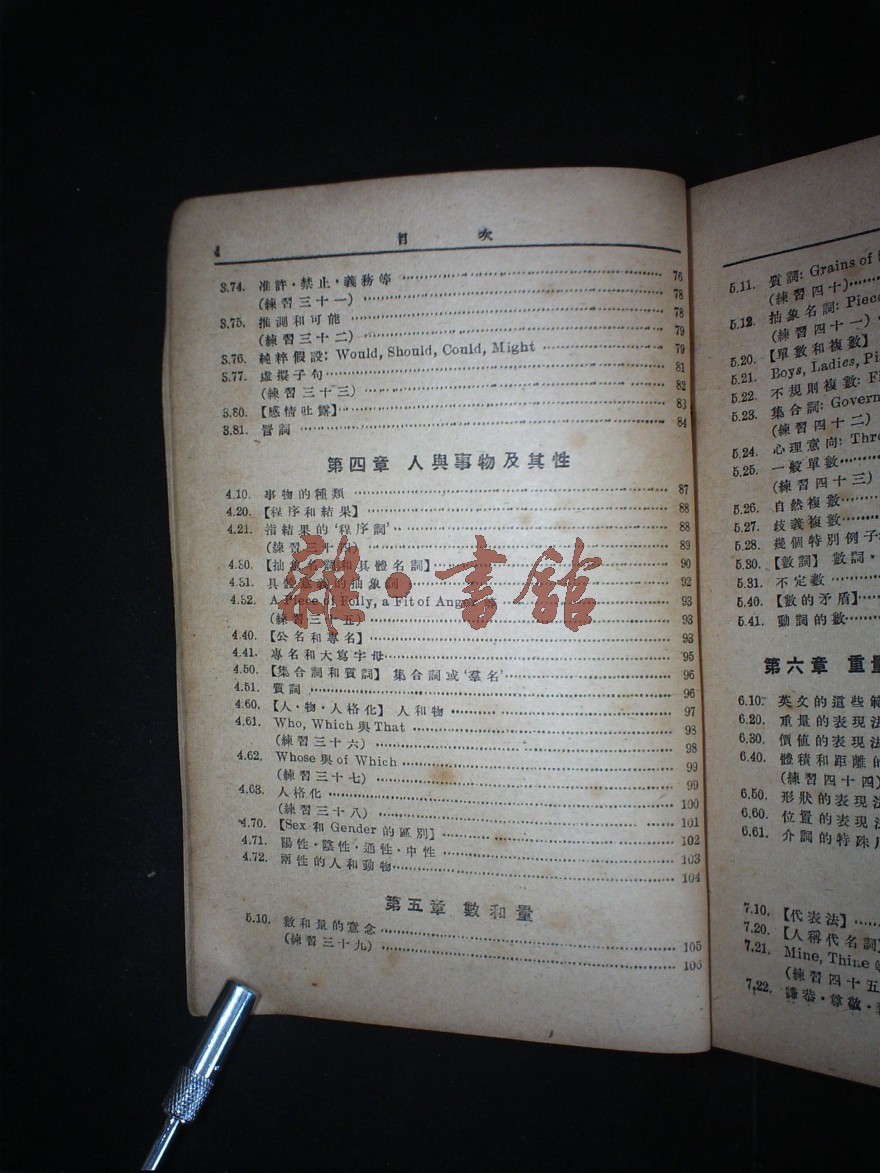 4 目 次
3.74. 准許·禁止·義務等 76
(練習三十一) 78
3.75. 推測和可能 78
(練習三十二) 79
3.76. 純粹假設: Would, Should, Could, Might 79
3.77. 虛擬子句 81
(練習三十三) 82
3.80. 【感情吐露】 83
3.81. 詈詞 84
第四章 人與事物及其性
4.10. 事物的種類 87
4.20. 【程序和結果】 88
4.21. 指結果的‘程序詞’ 88
(練習三十四) 89
4.30. 【抽象名詞和具體名詞】 90
4.31. 具體意義的抽象詞 92
4.32. A Piece of Folly, a Fit of Anger 等 93
(練習三十五) 93
4.40. 【公名和專名】 93
4.41. 專名和大寫字母 95
4.50. 【集合詞和質詞】 集合詞或‘羣名’ 96
4.51. 質詞 96
4.60. 【人·物·人格化】 人和物 97
4.61. Who, Which 與 That 98
(練習三十六) 98
4.62. Whose 與 of Which 99
(練習三十七) 99
4.63. 人格化 100
(練習三十八) 101
4.70. 【Sex 和 Gender 的區別】 102
4.71. 陽性·陰性·通性·中性 103
4.72. 兩性的人和動物 104
第五章 數和量
5.10. 數和量的意念 105
(練習三十九) 106
5.11. 質詞: Grains of
(練習四十)
5.12. 抽象名詞: Piece
(練習四十一)
5.20. 【單數和複數】
5.21. Boys, Ladies,
5.22. 不規則複數:
5.23. 集合詞: Govern
(練習四十二)
5.24. 心理意向: Thr
5.25. 一般單數
(練習四十三)
5.26. 自然複數
5.27. 歧義複數
5.28. 幾個特別例子
5.30. 【數詞】 數詞
5.31. 不定數
5.40. 【數的矛盾】
5.41. 動詞的數
第六章 重量
6.10. 英文的這些範
6.20. 重量的表現法
6.30. 價值的表現法
6.40. 體積和距離的
(練習四十四)
6.50. 形狀的表現法
6.60. 位置的表現法
6.61. 介詞的特殊
7.10. 【代表法】
7.20. 【人稱代名詞】
7.21. Mine, Thine 等
(練習四十五
7.22. 謙恭·尊敬·
雜·書館